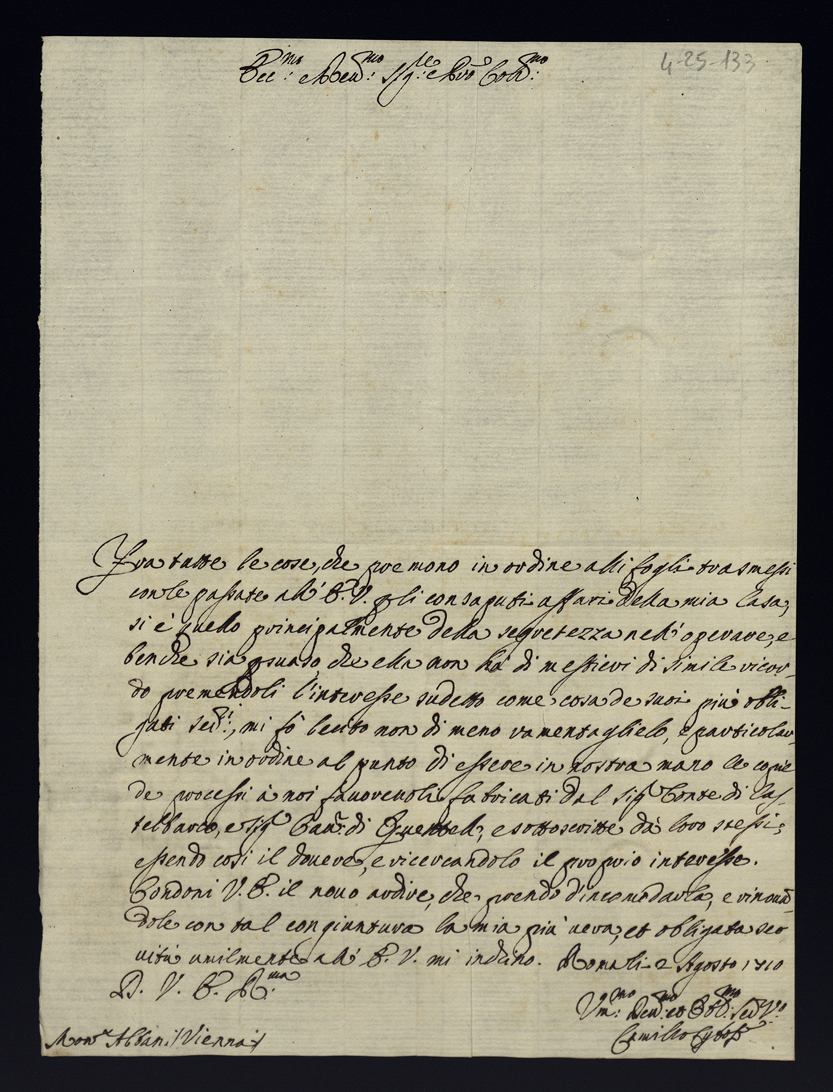 Ecc:mo e Rev:mo Sig:re e Pron Col:mo
4-25-133
Fra tutte le cose, che premono in ordine alli fogli trasmessi
con le passate all' E. V. p gli consaputi affari della mia Casa,
si è quello principalmente della segretezza nell' operare, e
benche sia psuaso che ella non hà di mestieri di simile ricor-
do premendoli l'interesse sudetto come cosa de suoi più obli-
gati ser:ri, mi fò lecito non di meno ramentaglielo, e particolar-
mente in ordine al punto di essere in nostra mano le copie
de processi à noi favorevoli fabricati dal Sig.r Conte di Cas-
telbarco, e Sig.r Bar: di Quentell, e sottoscritte dà loro stessi;
essendo così il dovere, e ricercandolo il proprio interesse.
Condoni V. E. il novo ardire, che prendo d'incomodarla, e rinova-
dole con tal congiuntura la mia più vera, et obligata ser
vitù umilmente all' E. V. mi inchino. Roma li 2 Agosto 1710
D. V. E. R:ma
Um:mo Dev:mo et Obl:mo Ser:V:e
Camillo
Mon.r Albani / Vienna /